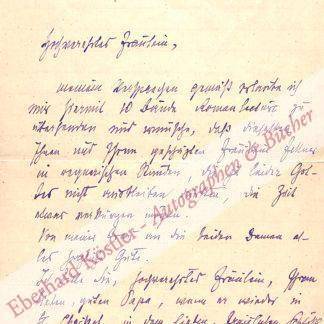 Hochverehrtes Fräulein,
meinem Versprechen gemäß erlaube ich
mir hiermit 10 Bände Romanlecture zu
übersenden und wünsche, daß dieselben
Ihnen mit Ihrem geschätzten Fräulein
in regnerischen Stunden, die leider Got-
tes nicht ausbleiben werden, die Zeit
etwas verkürzen mögen.
Von meiner an die beiden Damen al-
les Gute.
Sie, hochverehrtes Fräulein, Ihrem
guten Papa, wenn er wieder in
in dem lieben
Eberhard Köstler - Autographen & Bücher